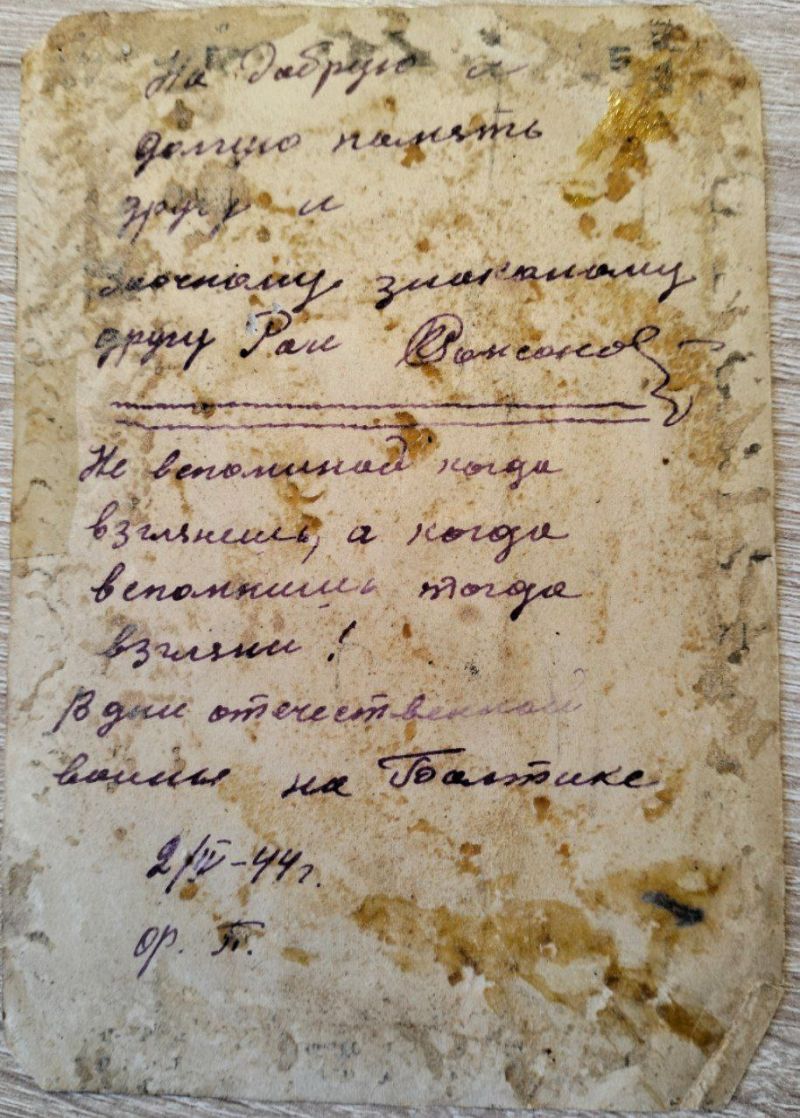 На добрую и
долгую память
другу и
заочному знакомому
другу Раи
Не вспоминай когда
взглянешь, а когда
вспомнишь тогда
взгляни!
В дни отечественной
войны на Балтике
2/IV-44г.
ор. П.